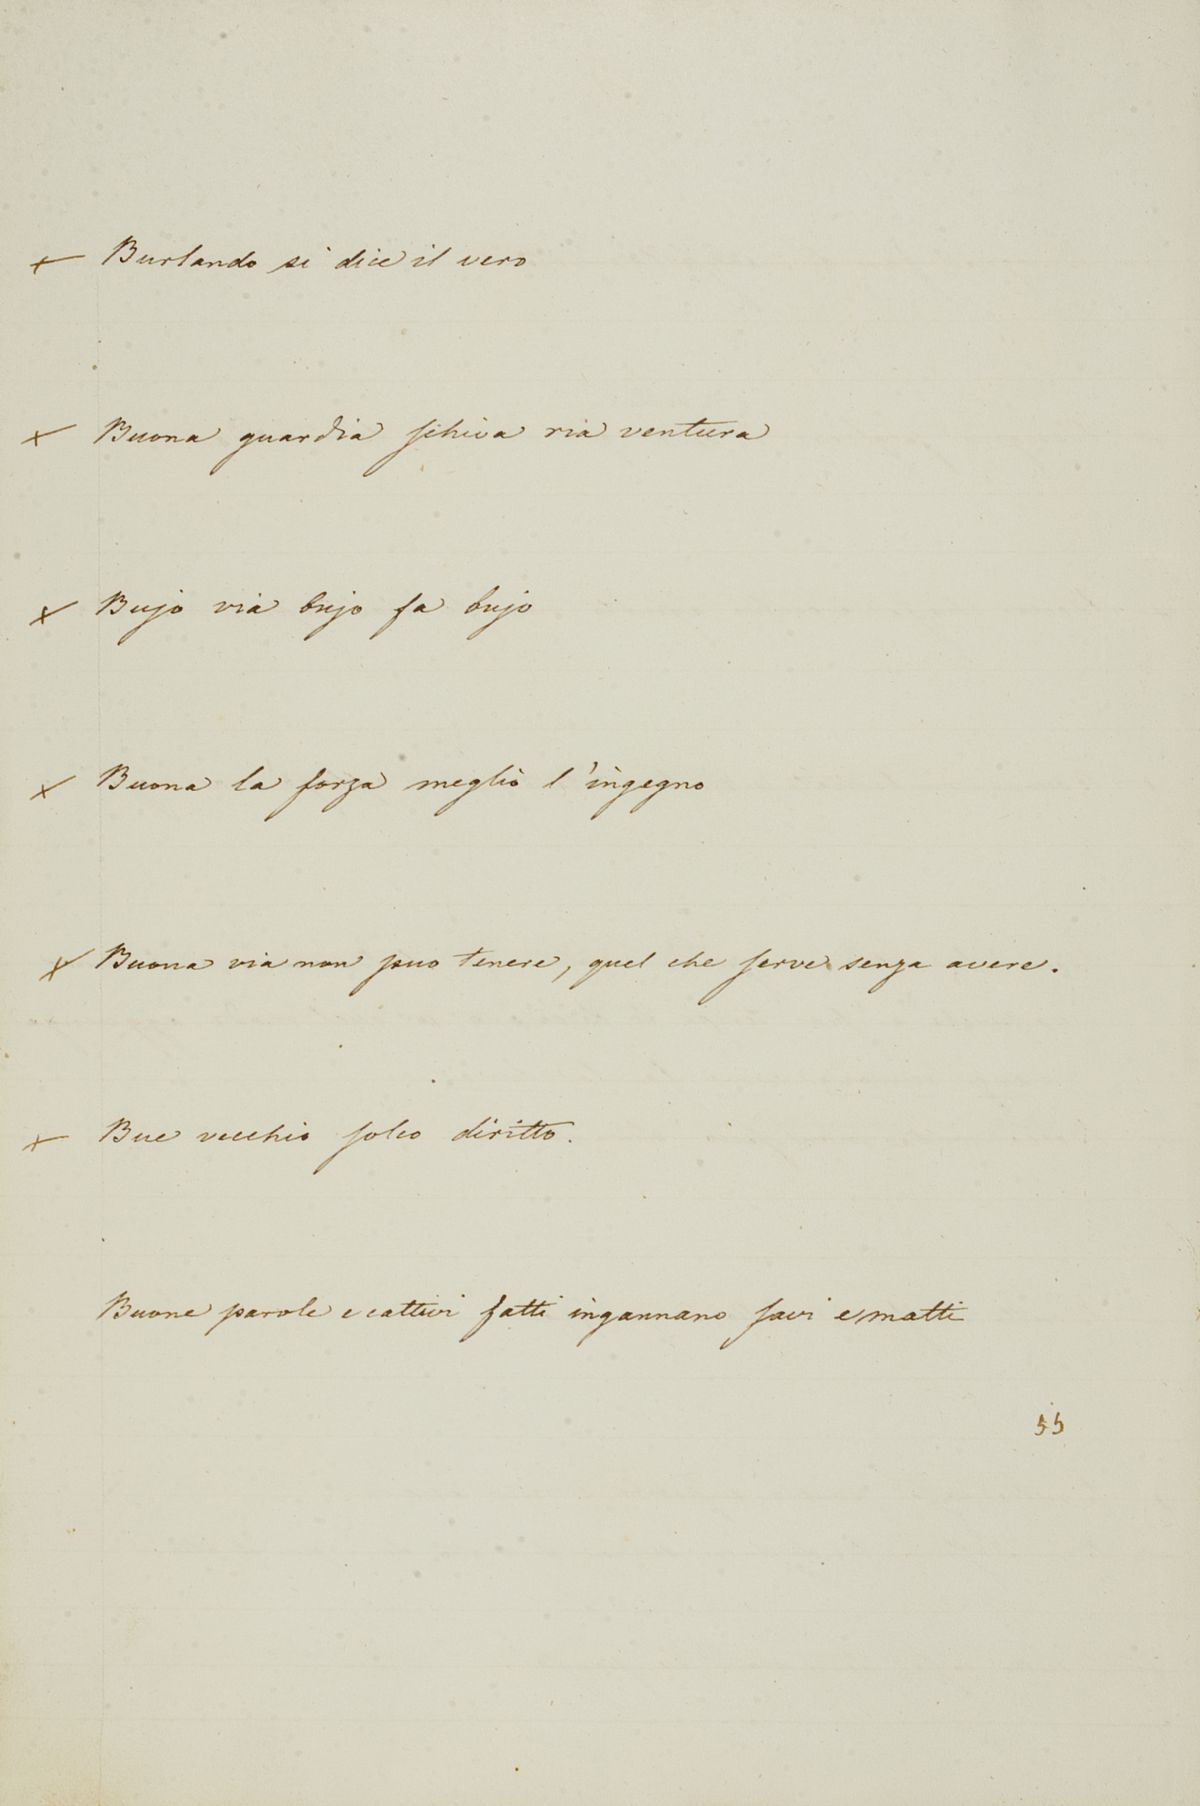 × Burlando si dice il vero
× Buona guardia schiva ria ventura
× Bujo via bujo fa bujo
× Buona la forza meglio l'ingegno
× Buona via non puo tenere, quel che serve senza avere.
× Bue vecchio solco diritto.
Buone parole e cattivi fatti ingannano savi e matti
55